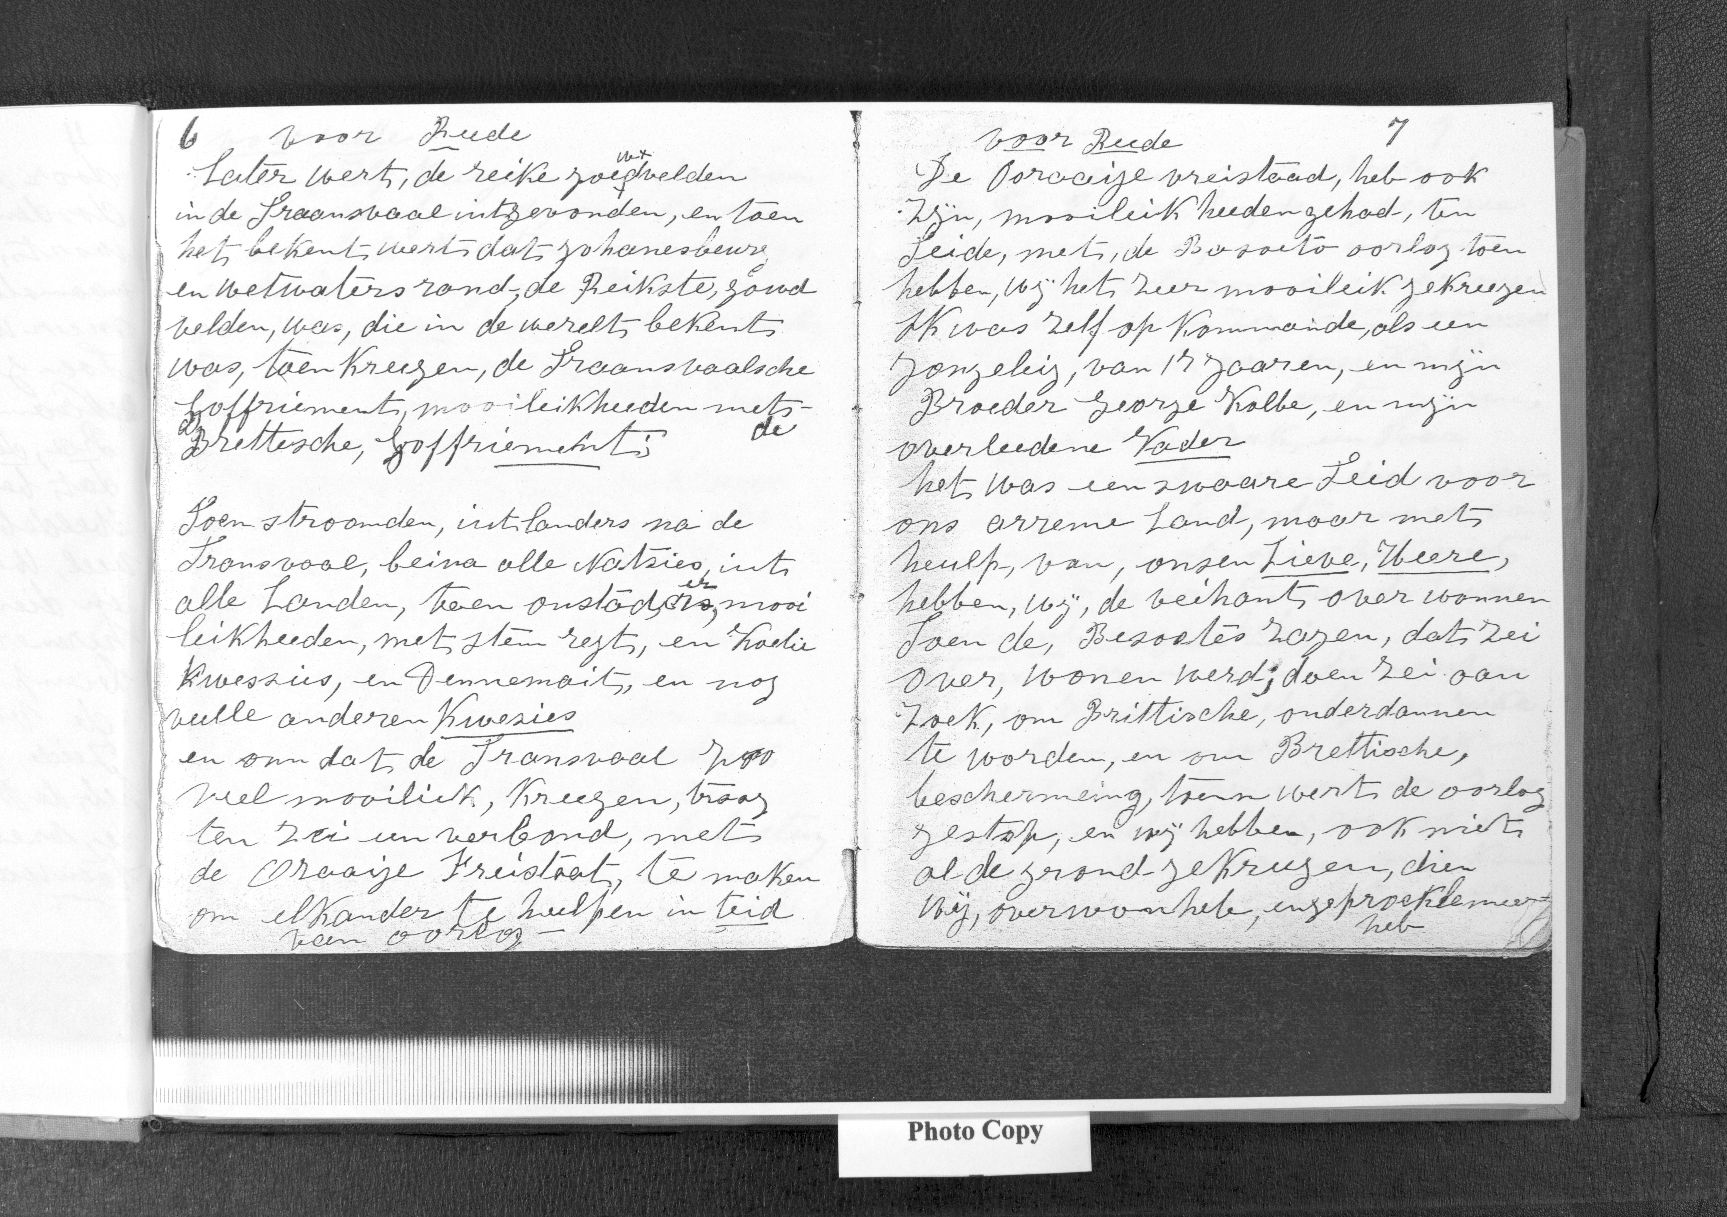 6 voor Reede
Later wert, de reike goudvelden
in de Traansvaal uitgevonden, en toen
het bekent wert dat Johanesbeurg
en wetwatersrand, de Reikste, gowd
velden, was, die in de werelt bekent
was, toen kreegen, de Traansvaalsche
Goffriement, mooileikheeden met
de
Brettische, Goffriement;
Toen stroomden, uitlanders na de
Transvaal, beina alle Natsies, uit
alle Landen, toen onstod, er, mooi
leikheeden, met stem regt, en Koelie
kwessies, en Dennemait, en nog
veelle anderen Kwesies
en omdat de Transvaal zoo
veel mooiliek, kreegen, traag
ten zei een verbond, met
de Oraaije Freistaat, te maken
om elkander te heelpen in teid
van oorlog
7
voor Reede
De Ooraaije vreistaad, heb ook
Zijn, mooileik heeden gehad, ten
Teide, met, de Basoeto oorlog toen
hebben, wij het zeer mooileik gekreegen
Ik was zelf op Kommande, als een
Jongeling, van 17 Jaaren, en mijn
Broeder George Kolbe, en mijn
overleedene Vader
het was een swaare Teid voor
ons arreme Land, maar met
heulp, van, onsen Lieve, Heere,
hebben, wij, de veihant over wonnen
Toen de, Besoetes zagen, dat zei
over, wonen werd; doen zei aan
Zoek, om Brittische, onderdannen
te worden, en om Brettische,
beschermeing, toenn wert de oorlog
gestop, en wij hebben, ook niet
al de grond gekreegen, dien
wij, overwon heb, en geproeklemeer
heb
Photo Copy